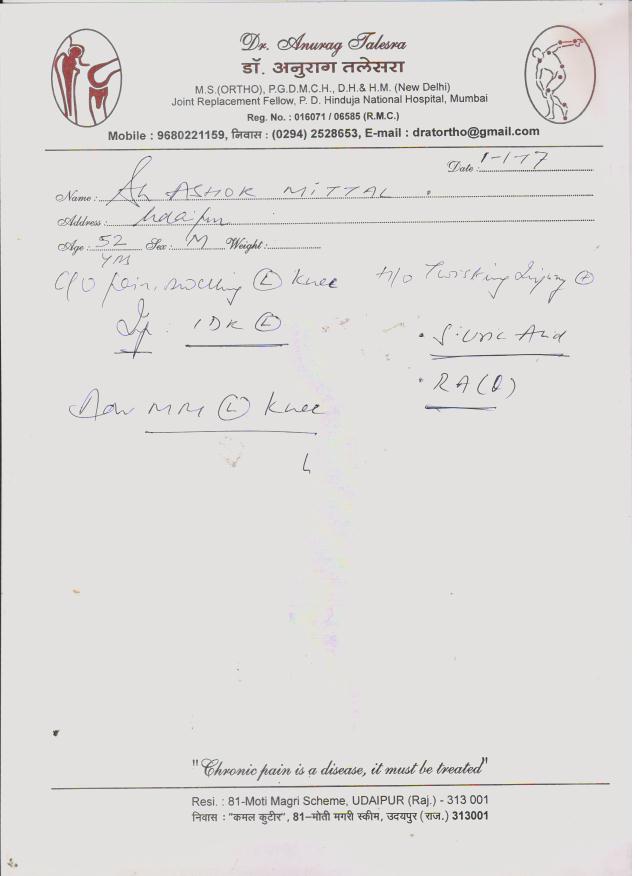 Dr. Anurag Talesra
डॉ. अनुराग तलेसरा
M.S.(ORTHO), P.G.D.M.C.H., D.H.& H.M. (New Delhi)
Joint Replacement Fellow, P. D. Hinduja National Hospital, Mumbai
Reg. No. : 016071 / 06585 (R.M.C.)
Mobile : 9680221159, निवास : (0294) 2528653, E-mail : dratortho@gmail.com
Date : 1-1-17
Name : Sh ASHOK MITTAL
Address : Udaipur
Age : 52 Sex : M Weight :
C/O pain, swelling (L) Knee H/O Twisting Injury (+)
: IDK (L)
• S. Uric Acid
• RA(Q)
Adv MRI (L) Knee
"Chronic pain is a disease, it must be treated"
Resi. : 81-Moti Magri Scheme, UDAIPUR (Raj.) - 313 001
निवास : "कमल कुटीर", 81–मोती मगरी स्कीम, उदयपुर (राज.) 313001